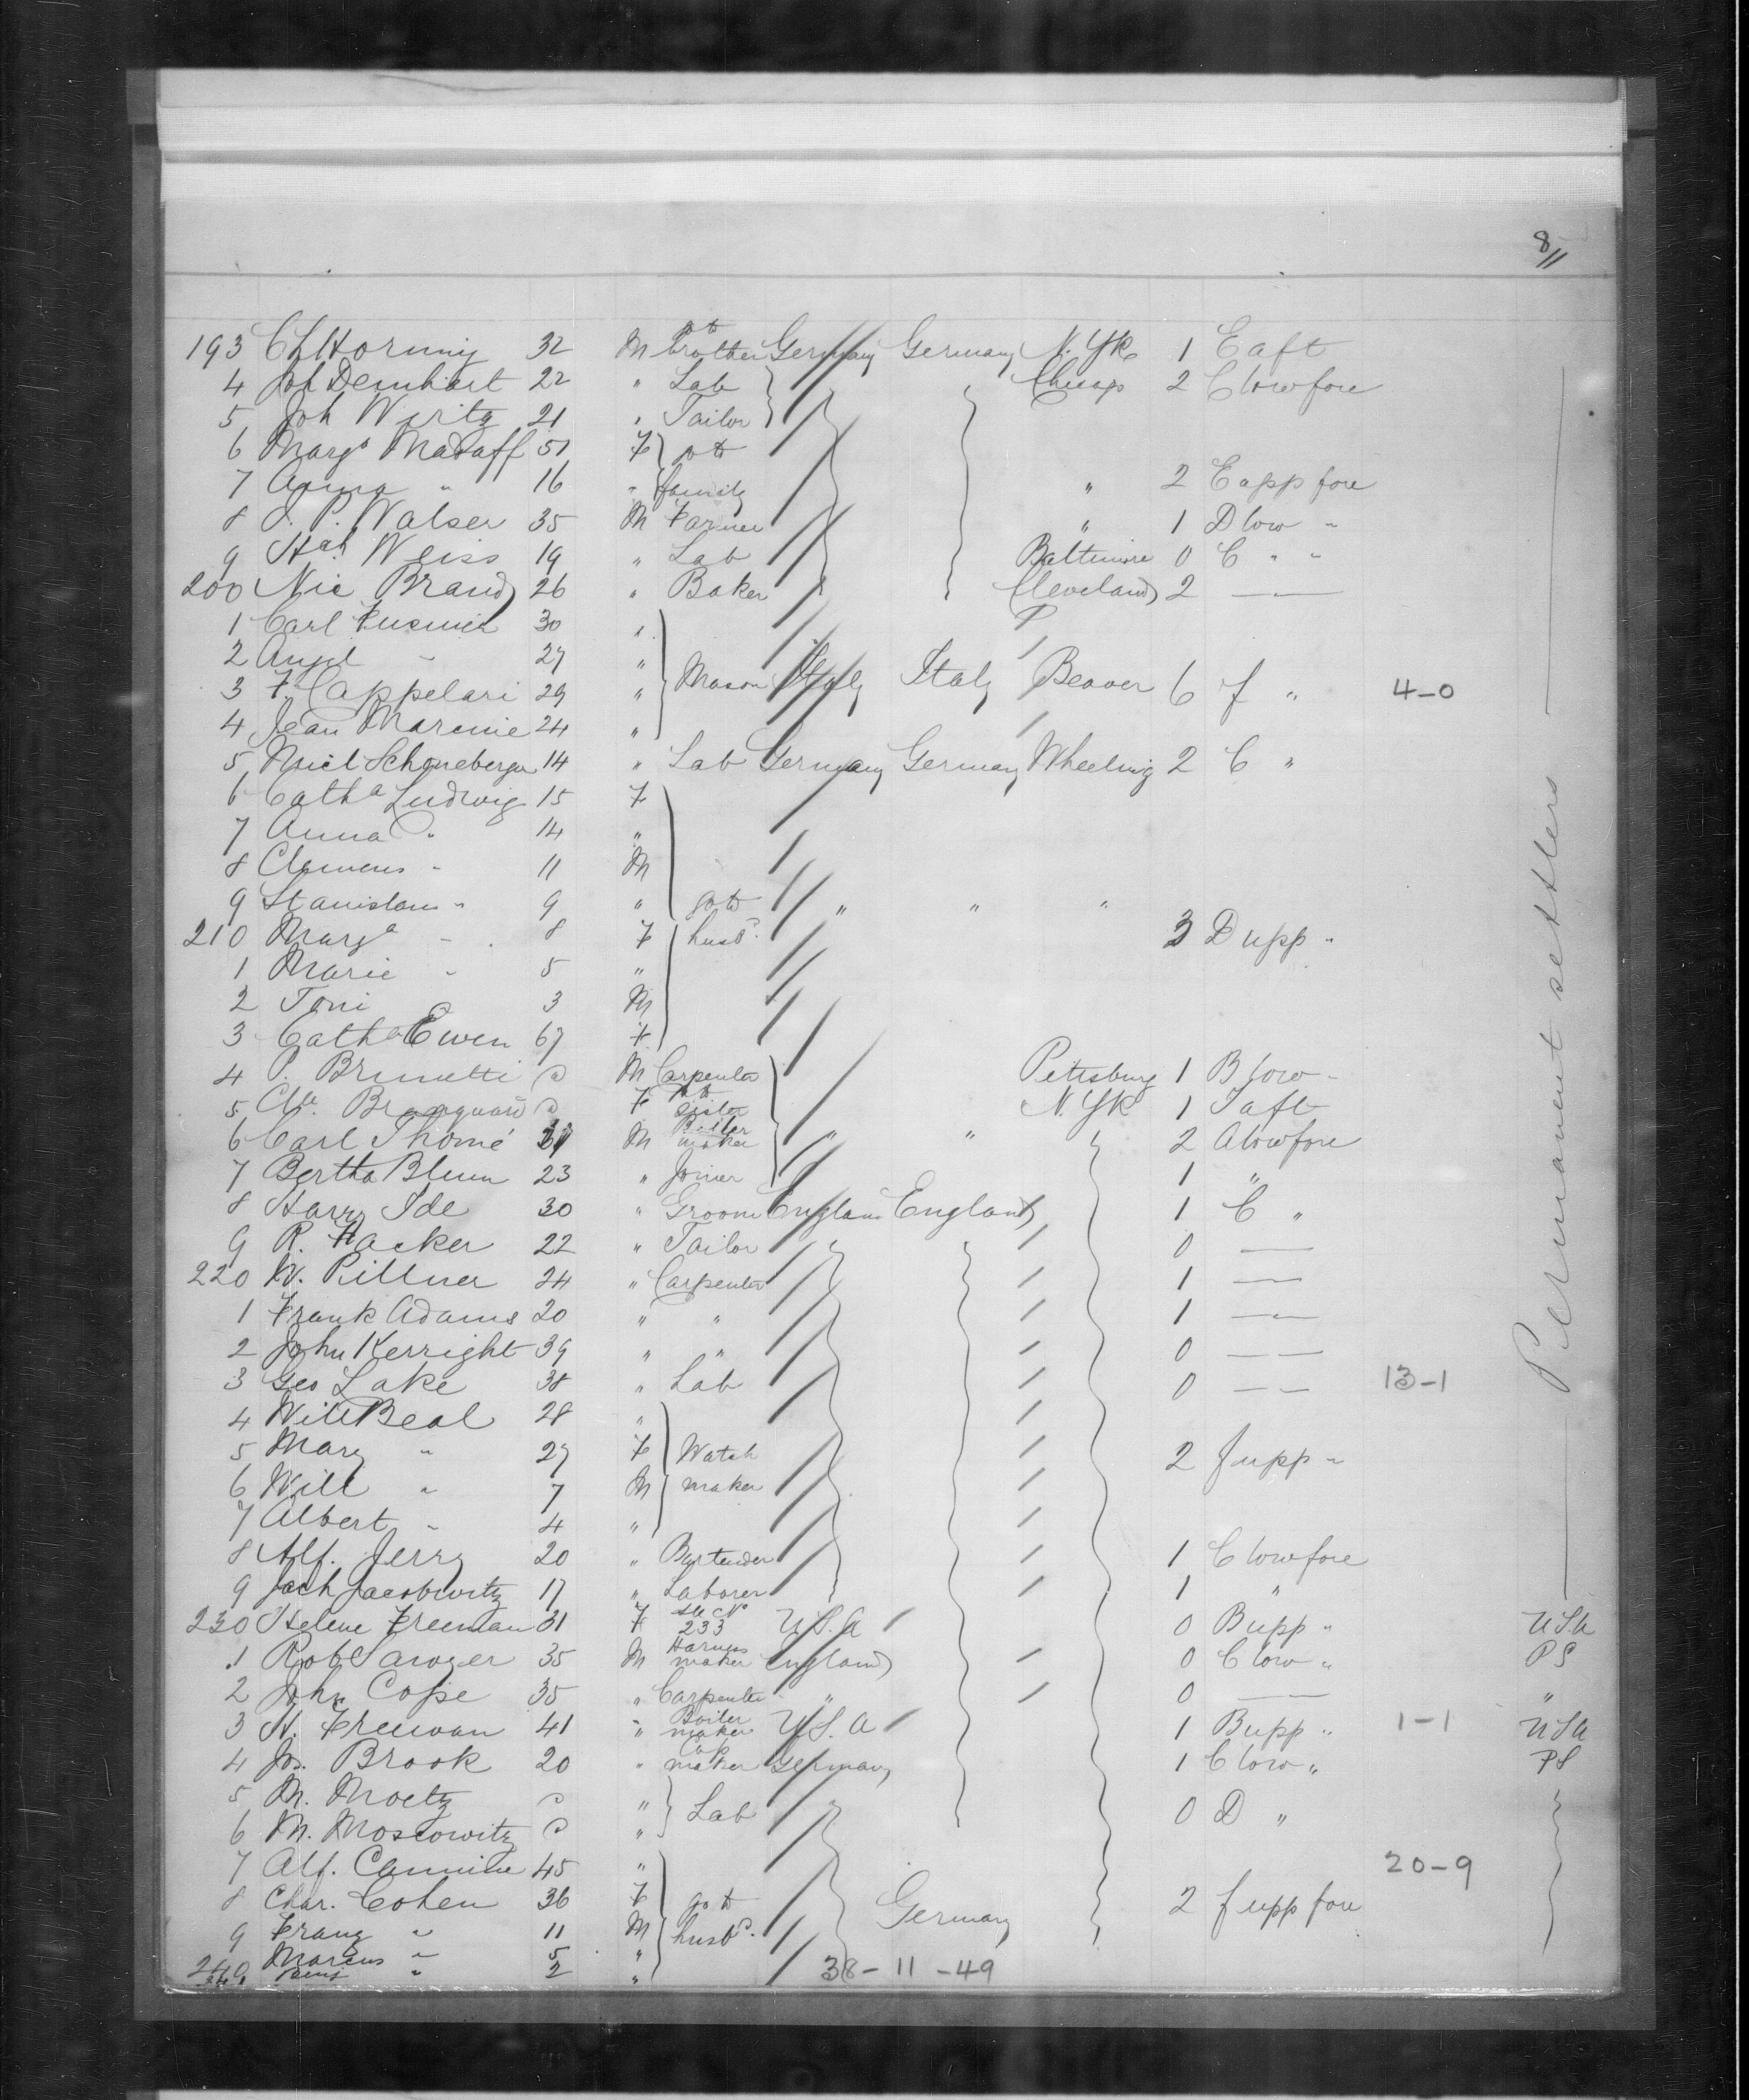 8/11
193 Ch Hornung 32 M to brother Germany Germany N.Yk 1 E aft
4 Joh Dernhart 22 " Lab Chicago 2 C low fore
5 Joh Wirtz 21 " Tailor
6 Marga 51 F to
7 Anna " 16 " family " 2 E upp fore
8 J. P. Walser 35 M Farmer " 1 D low "
9 Weiss 19 " Lab Baltimore 0 C " "
200 Nic Brand 26 " Baker Cleveland 2 —
1 Carl 30 "
2 Angel " 27 "
3 F. Cappelari 29 " Mason Italy Italy Beaver 6 f " 4-0
4 Jean 24 "
5 Nicl Schoneberger 14 " Lab Germany Germany Wheeling 2 C "
6 Catha Ludwig 15 F
7 Anna " 14 "
8 Clemens " 11 M
9 Stanislaus " 9 " go to " " "
210 Marga " 8 F husbd. 3 D upp "
1 Marie " 5 "
2 Toni 3 M
3 Catha Ewen 67 F
4 P. Brunetti M Carpenter Pittsburg 1 B low "
5 F to sister N.Yk 1 J aft
6 Carl Thomé 31 M Boiler maker " " 2 A low fore
7 Bertha Blum 23 " Joiner 1 "
8 Harry Ide 30 " Groom England England 1 C "
9 R. Hacker 22 " Tailor 0 —
220 W. Pillner 24 " Carpenter 1 —
1 Frank Adams 20 " " 1 —
2 John Kerright 39 " " 0 —
3 Geo Lake 38 " Lab 0 — 13-1
4 Will Beal 28 "
5 Mary " 27 F Watch 2 J upp "
6 Will " 7 M maker
7 Albert " 4 "
8 Alf. Jerry 20 " Bartender 1 C low fore
9 Jach Jacobwitz 17 " Laborer 1 "
230 Helene Freeman 31 F see No 233 U.S.A 0 B upp " USA
1 Robt Sawyer 35 M Harness maker England 0 C low " PS
2 John Cope 35 " Carpenter " 0 — "
3 H. Freeman 41 " Boiler maker U.S.A 1 B upp " 1-1 USA
4 Js. Brook 20 " Cap maker Germany 1 C low " PS
5 M. Moetz " Lab 0 D "
6 M. Moscowitz "
7 Alf. 45 " 20-9
8 Char. Cohen 36 F go to Germany 2 J upp fore
9 Franz " 11 M husbd.
240 Marcus " 5 "
" 2 " 38-11-49
Permanent settlers